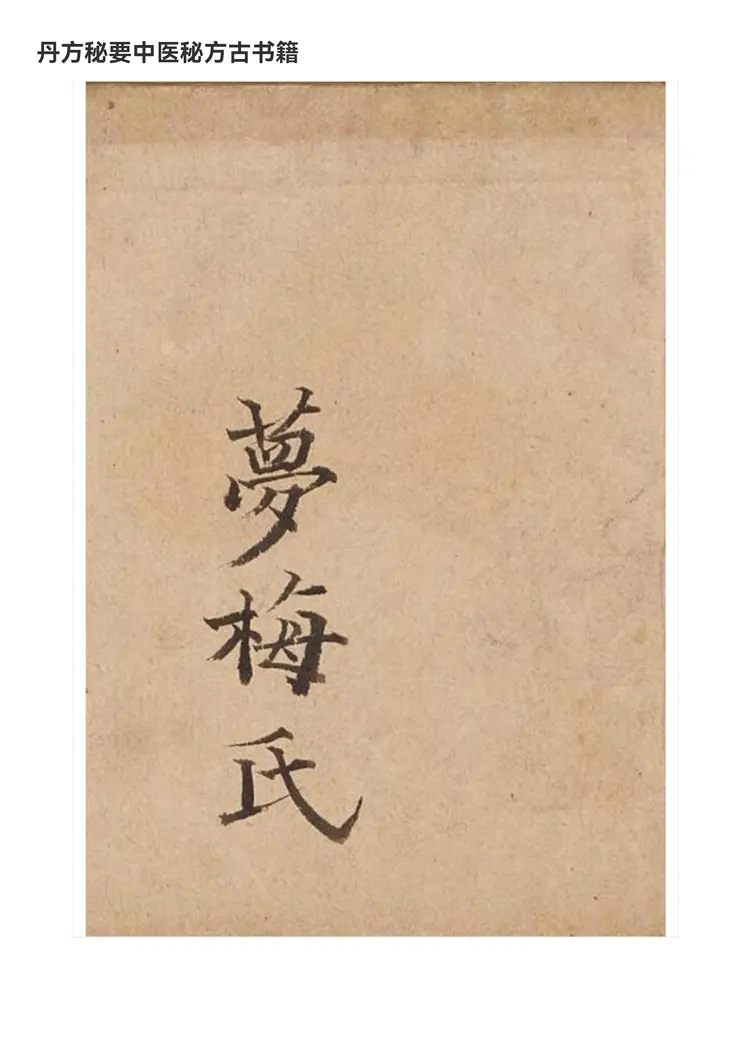 丹方秘要中医秘方古书籍
夢梅氏